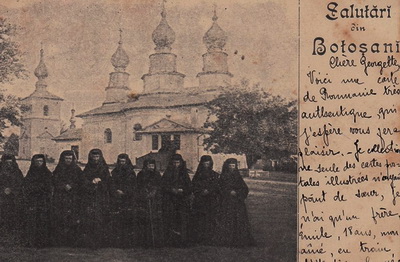 Salutări
din
Botoşani
Chère Georgette
Voici une carte
de Roumanie très
authentique qui
j'espère vous fera
plaisir. - Je collectionne
seule des cartes pos-
tales illustrées n'ayant
point de sœur, je
n'ai qu'un frère,
Émile, 18 ans, mon
aîné, en train,